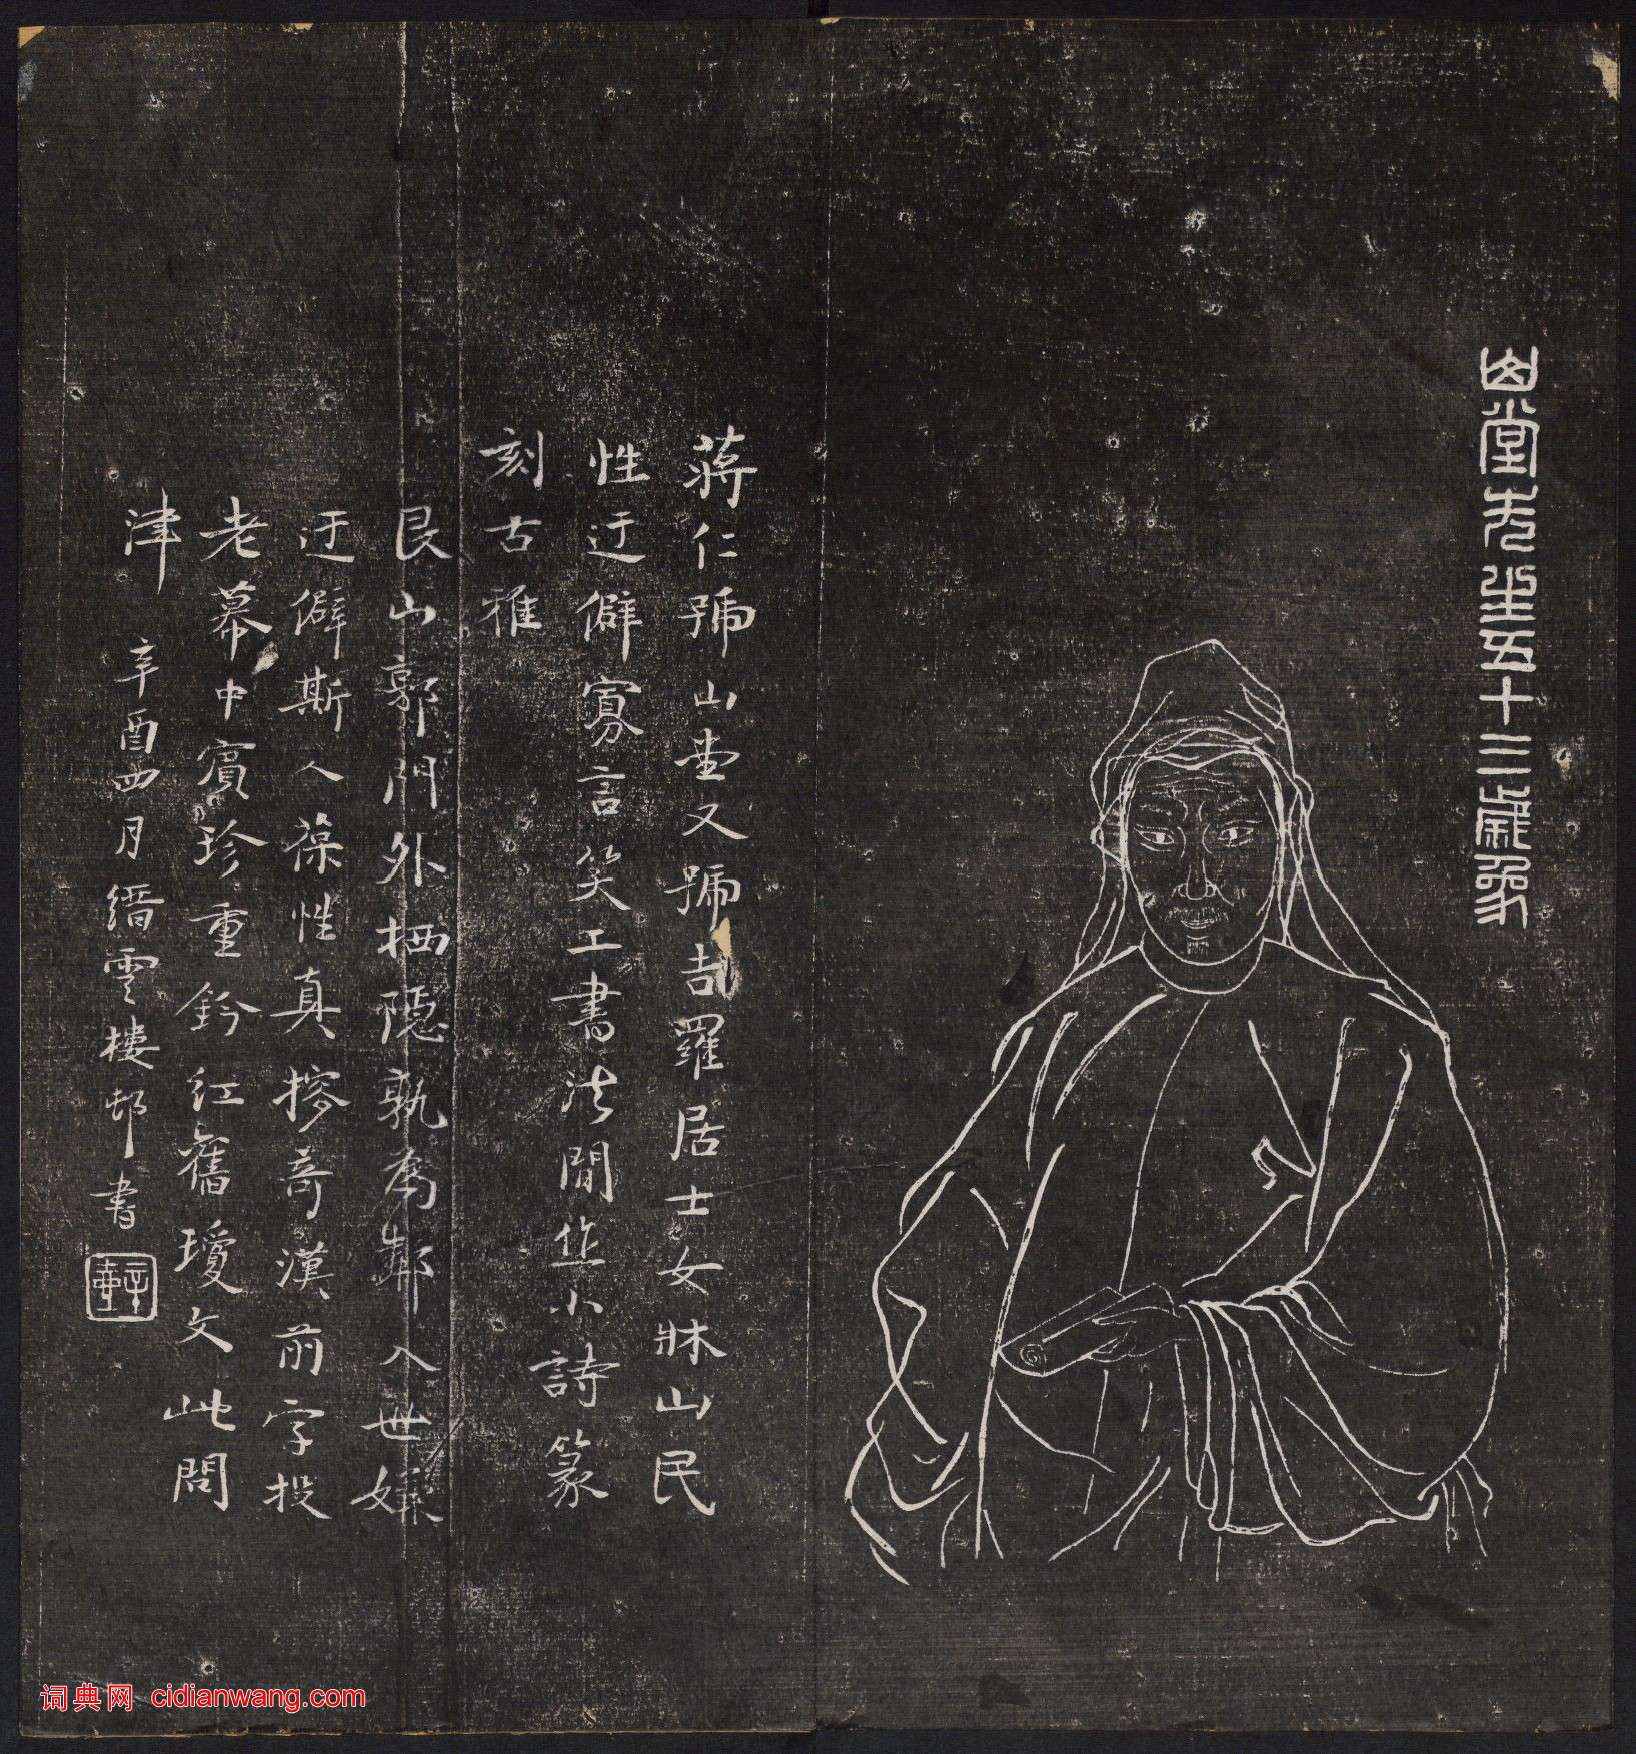 山堂先生五十三歲象
蔣仁號山堂又號吉羅居士女牀山民
性迂僻寡言笑工書法間作小詩篆
刻古雅
艮山郭門外栖隱孰為鄰入世嫌
迂僻斯人葆性真摎奇漢前字投
老幕中賓珍重鈐紅舊瓊文此問
津
辛酉四月縉雲樓邨書
词典网 cidianwang.com